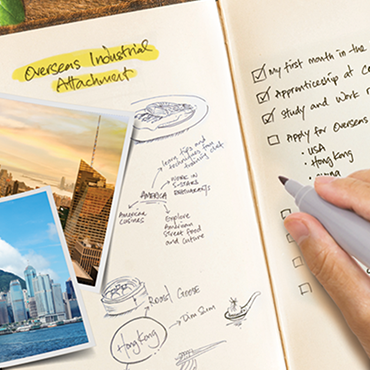 Overseas Industrial
Attachment
learn tips and
techniques from
training chef
WORK IN
5-STARS
RESTAURANTS
AMERICA
American
cuisines
Explore
American
street food
and culture
ROAST GOOSE
Dim Sum
Hong Kong
My first month in the
Apprenticeship at
Study and work
Apply for Overseas
USA
Hong Kong